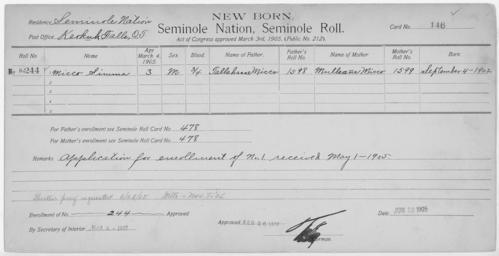 NEW BORN.
Residence Seminole Nation
Seminole Nation, Seminole Roll.
Card No. 146
Post Office. Keokuk Falls, O.T.
Act of Congress approved March 3rd, 1905, (Public No. 212).
Roll No. Name Age March 4, 1905. Sex Blood. Name of Father. Father's Roll No. Name of Mother. Mother's Roll No. Born
244 1 Micco Simma 3 M 3/4 Tallahasse Micco 1598 Micco 1599 September 4-1902
2
3
4
5
For Father's enrollment see Seminole Roll Card No. 478
For Mother's enrollment see Seminole Roll Card No. 478
Remarks Application for enrollment of No.1 received May 1-1905
Further proof requested
Enrollment of No. 244 Approved
Approved
Date JUN 1905
By Secretary of Interior